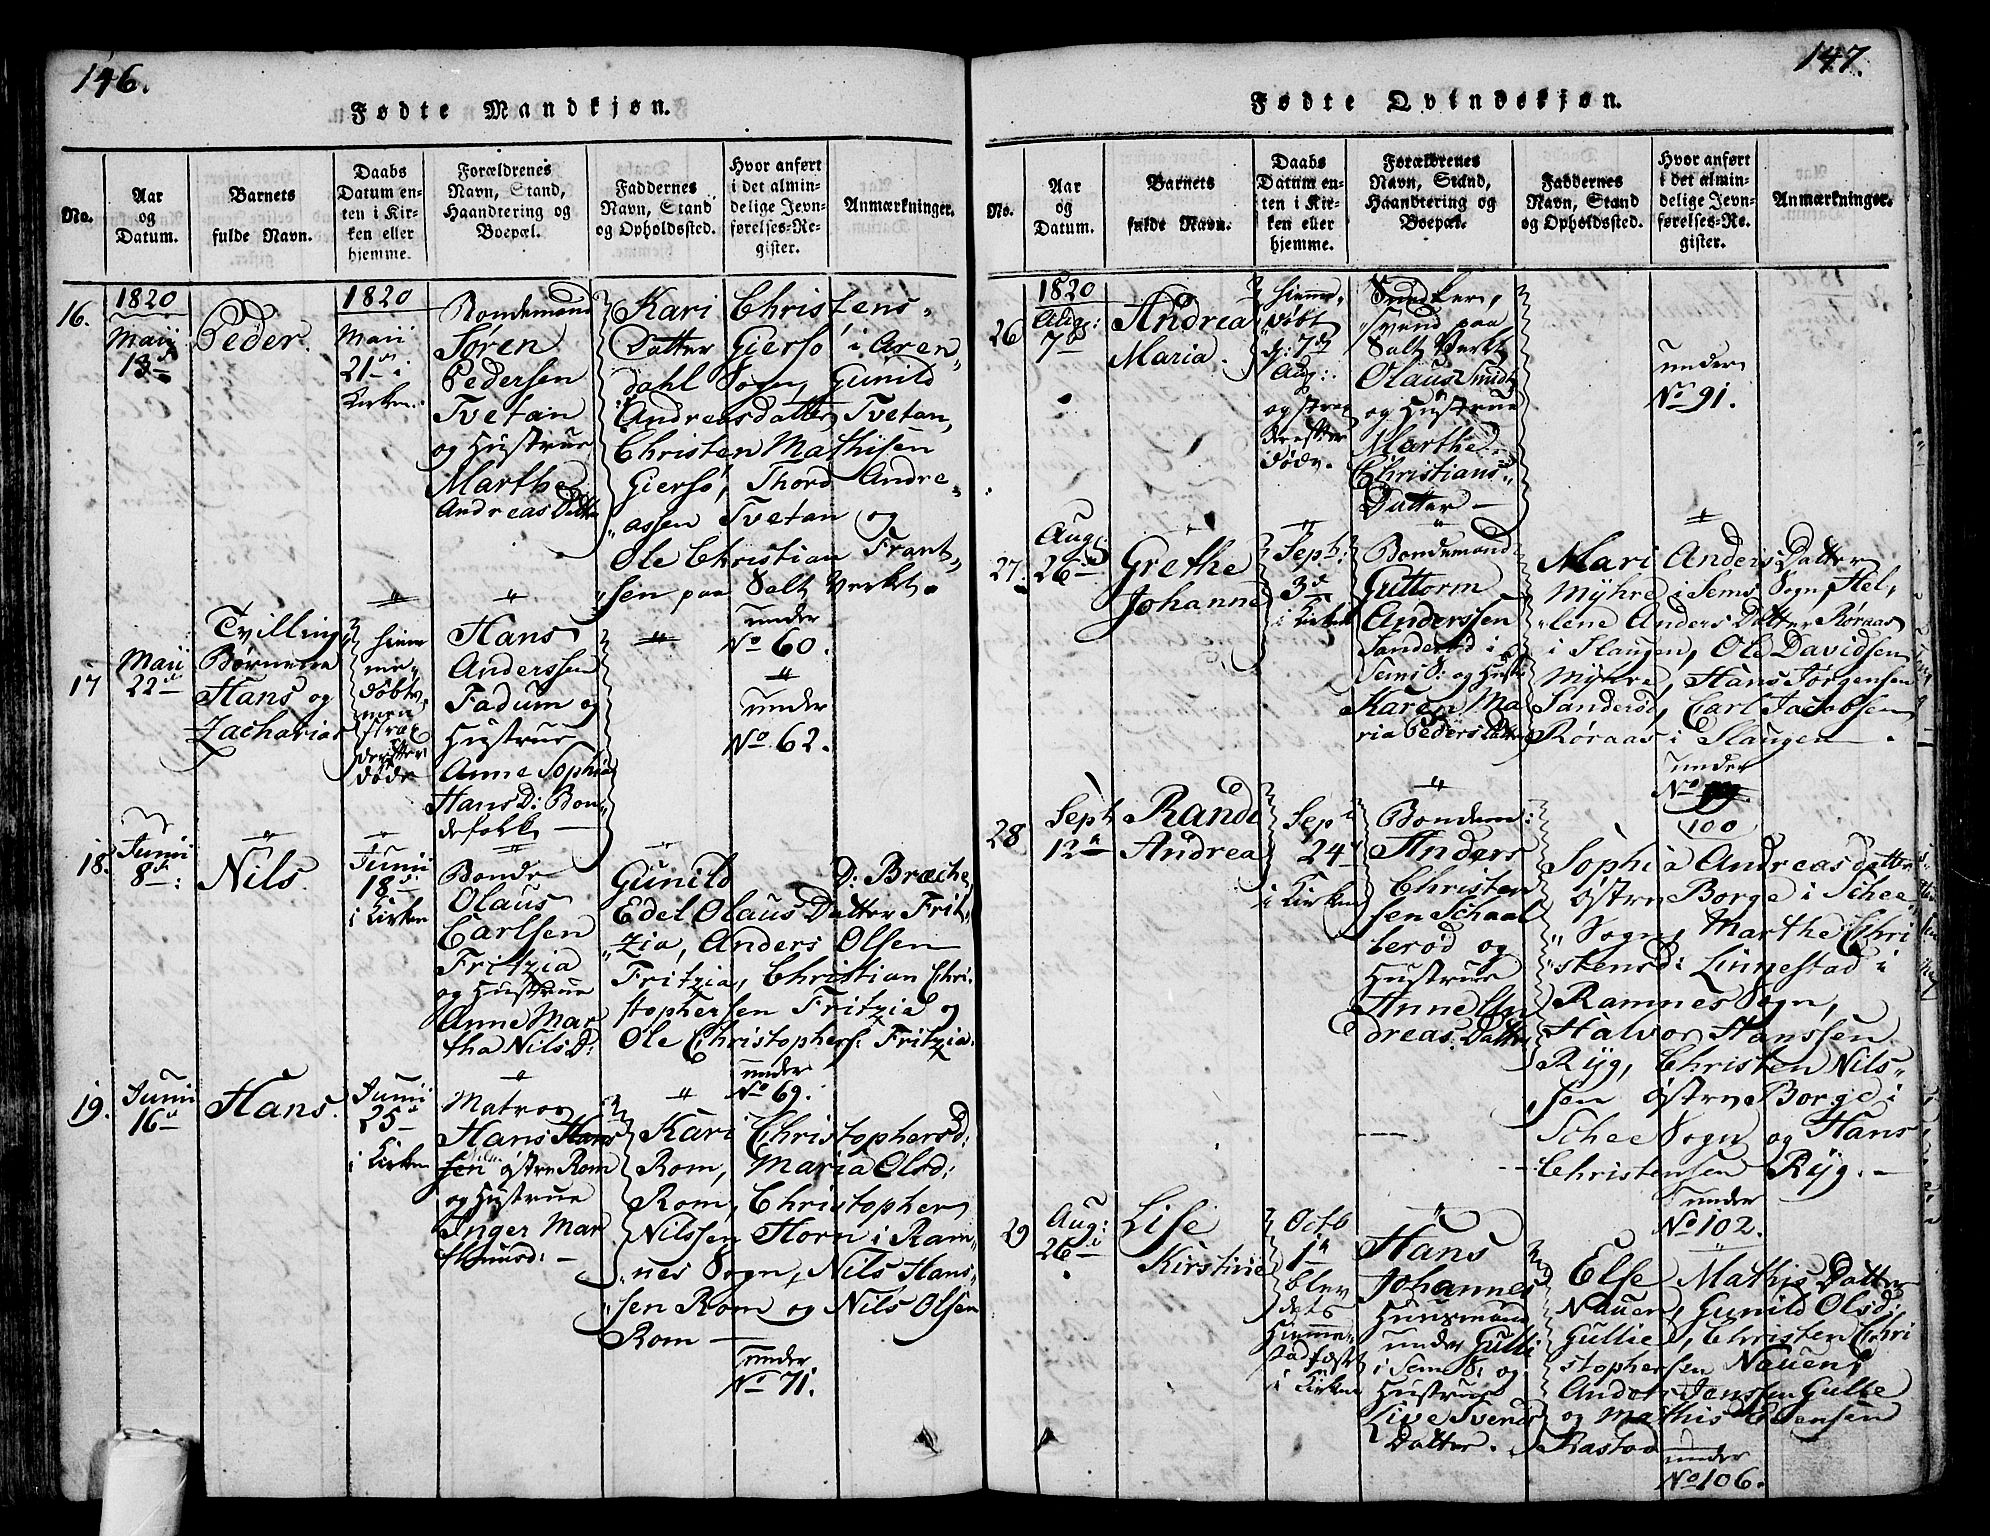 146.
Fødte Mandkjøn.
No.
Aar
og
Datum.
Barnets
fulde Navn.
Daabs
Datum en-
ten i Kir-
ken eller
hjemme.
Forældrenes
Navn, Stand,
Haandtering og
Boepæl.
Faddernes
Navn, Stand
og Opholdssted.
Hvor anført
i det almin-
delige Jevn-
førelses-Re-
gister.
Anmærkninger.
16.
1820
Maii
13d
Peder.
1820
Maii
21de i
Kirken.
Bondemand
Søren
Pedersen
Tvetan
og Hustrue
Marthe
Andreas Datter
Kari Christens-
Datter Giersø i Aren-
dahl Sogn, Gunild
Andreasdatter Tvetan,
Christen Mathisen
Giersø, Thord Andre-
assen Tvetan og
Ole Christian Frant-
sen paa Salt Verket.
under
No 60.
17
Maii
22de
Tvilling
Børnene
Hans og
Zacharias
hiem-
me-
døbt,
men
strax
derefter
døde
Hans
Anderssen
Fadum og
Hustrue
Anne Sophia
Hans D: Bon-
defolk
under
No 62.
18.
Junii
8de:
Nils.
Junii
18de
i Kirken
Bonde
Olaus
Carlsen
Fritzia
og Hustrue
Anne Mar
tha Nils D:
Gunild D: Bræche,
Edel Olaus Datter Frit-
zia, Anders Olsen
Fritzia, Christian Chri-
stophersen Fritzia og
Ole Christophers: Fritzia.
under
No 69.
19.
Junii
16de
Hans.
Junii
25de
i Kirken
Matros
Hans Hans
sen Nils. østre Rom
og Hustrue
Inger Mar
thinusd:
Kari Christophersd:
Rom, Maria Olsd:
Rom, Christopher
Nilssen Horn i Ram-
nes Sogn, Nils Hans-
sen Rom og Nils Olsen
Rom
under
No 71.
147.
Fødte Qvindekjøn.
No.
Aar
og
Datum.
Barnets
fulde Navn.
Daabs
Datum en-
ten i Kir-
ken eller
hjemme.
Forældrenes
Navn, Stand,
Haandtering og
Boepæl.
Faddernes
Navn, Stand
og Opholdssted.
Hvor anført
i det almin-
delige Jevn-
førelses-Re-
gister.
Anmærkninger.
26
1820
Aug:
7de
Andrea
Maria.
hiemme-
døbt
d: 7de
Aug:
og strax
derefter
døde.
Snedker,
svend paa
Salt Verket
Olaus
og Hustrue
Marthe
Christians-
Datter
under
No 91.
27.
Aug:
26de
Grethe
Johanne
Sept:
3de
i Kirken
Bondemand
Guttorm
Anderssen
Sanderød i
Sem S: og Hustr
Karen Ma
ria Peders Datter
Mari Anders Datter
Myhre i Sems Sogn, Hel-
lene Anders Datter Røraas
i Slaugen, Ole Davidsen
Myhre, Hans Jørgensen
Sanderød, Carl Jacobsen
Røraas i Slaugen
under
No
100
28
Sept
12te
Randi
Andrea
Sept
24de
i Kirken
Bondem:
Anders
Christen
sen Schaal
lerød og
Hustrue
Anne An
dreas: Datter
Sophia Andreasdatter
østre Borge i Schee-
Sogn, Marthe Chri
stensd: Linnestad i
Ramnes Sogn,
Halvor Hanssen
Ryg, Christen Nils-
sen østre Borge i
Schee Sogn og Hans
Christensen Ryg.
under
No 102.
29
Aug:
26de
Lise
Kirstine
Octb
1te
blev
dets
Hiemme-
daab
i Kirken
Hans
Johannes
Huusmand
under Gulli
i Sem S: og
Hustrue
Live Svends
Datter.
Else Mathis Datter
Nauen, Gunild Olsd:
Gullie, Christen Chri
stophersen Nauen,
Anders Jenssen Gullie
og Mathis
Rastad
under
No 106.